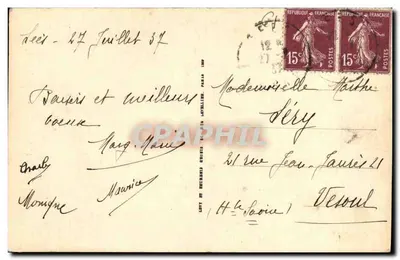 Sées - 27 Juillet 37
Baisers et meilleurs
voeux
Marg. Marie
Charly
Maurice
Monique
REPUBLIQUE FRANÇAISE
15c
POSTES
REPUBLIQUE FRANÇAISE
15c
POSTES
Mademoiselle Marthe
Séry
21 rue Jean-Jaurès 21
Vesoul
(Hte Saône)
CPAPHIL